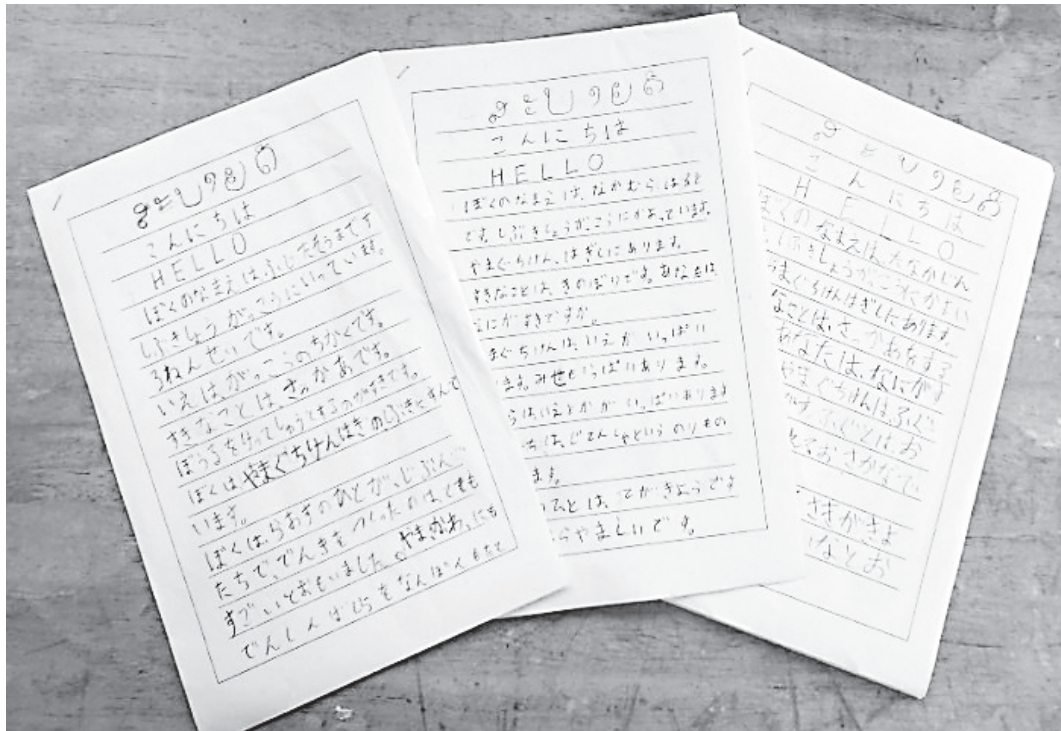 ສະບາຍດີ
こんにちは
HELLO
ぼくのなまえはふじたそうまです
しぶきしょうがっこうにいっています。
ろねんせいです。
いえは、がっこうのちかくです。
すきなことは、さっかあです。
ぼうるをけってしゅうとするのがすきです。
ぼくはやまぐちけんはぎの
います。
ぼくは、らおすのひとが、じぶん
たちで、でんきをつくったのは、とても
すごいとおもいました。やまかわ、にも
でんしんばしらをなんぼんもたて
ສະບາຍດີ
こんにちは
HELLO
ぼくのなまえは、なかむら、はると
です。しぶきしょうがっこうにかよっています。
やまぐちけん、はぎしにあります。
すきなことは、きのぼりです。あなたは、
なにがすきですか。
まぐちけんは、いえが いっぱい
ます。みせもいっぱいあります。
いっぱいあります
ちは、じてんしゃという のりもの
ます。
ひとは、てがきようです
らやましいです。
ສະບາຍດີ
こんにちは
HELLO
ぼくのなまえは、たなかじん
しぶきしょうがっこうにかよい
まぐちけんはぎしにあります。
なことは、さっかあをする
あなたは、なにがす
やまぐちけんはふぐ
す。ふぐとは、お
おさかなで
さきがさよ
なとお